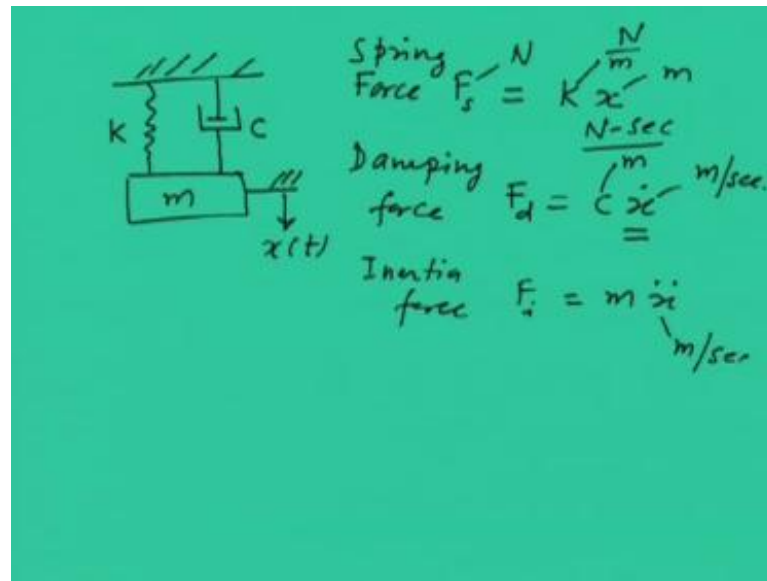 K
C
m
x(t)
Spring
Force F_s = K x
N
N/m
m
Damping
force F_d = C ẋ
N-sec/m
m/sec.
Inertia
force F_i = m ẍ
m/sec